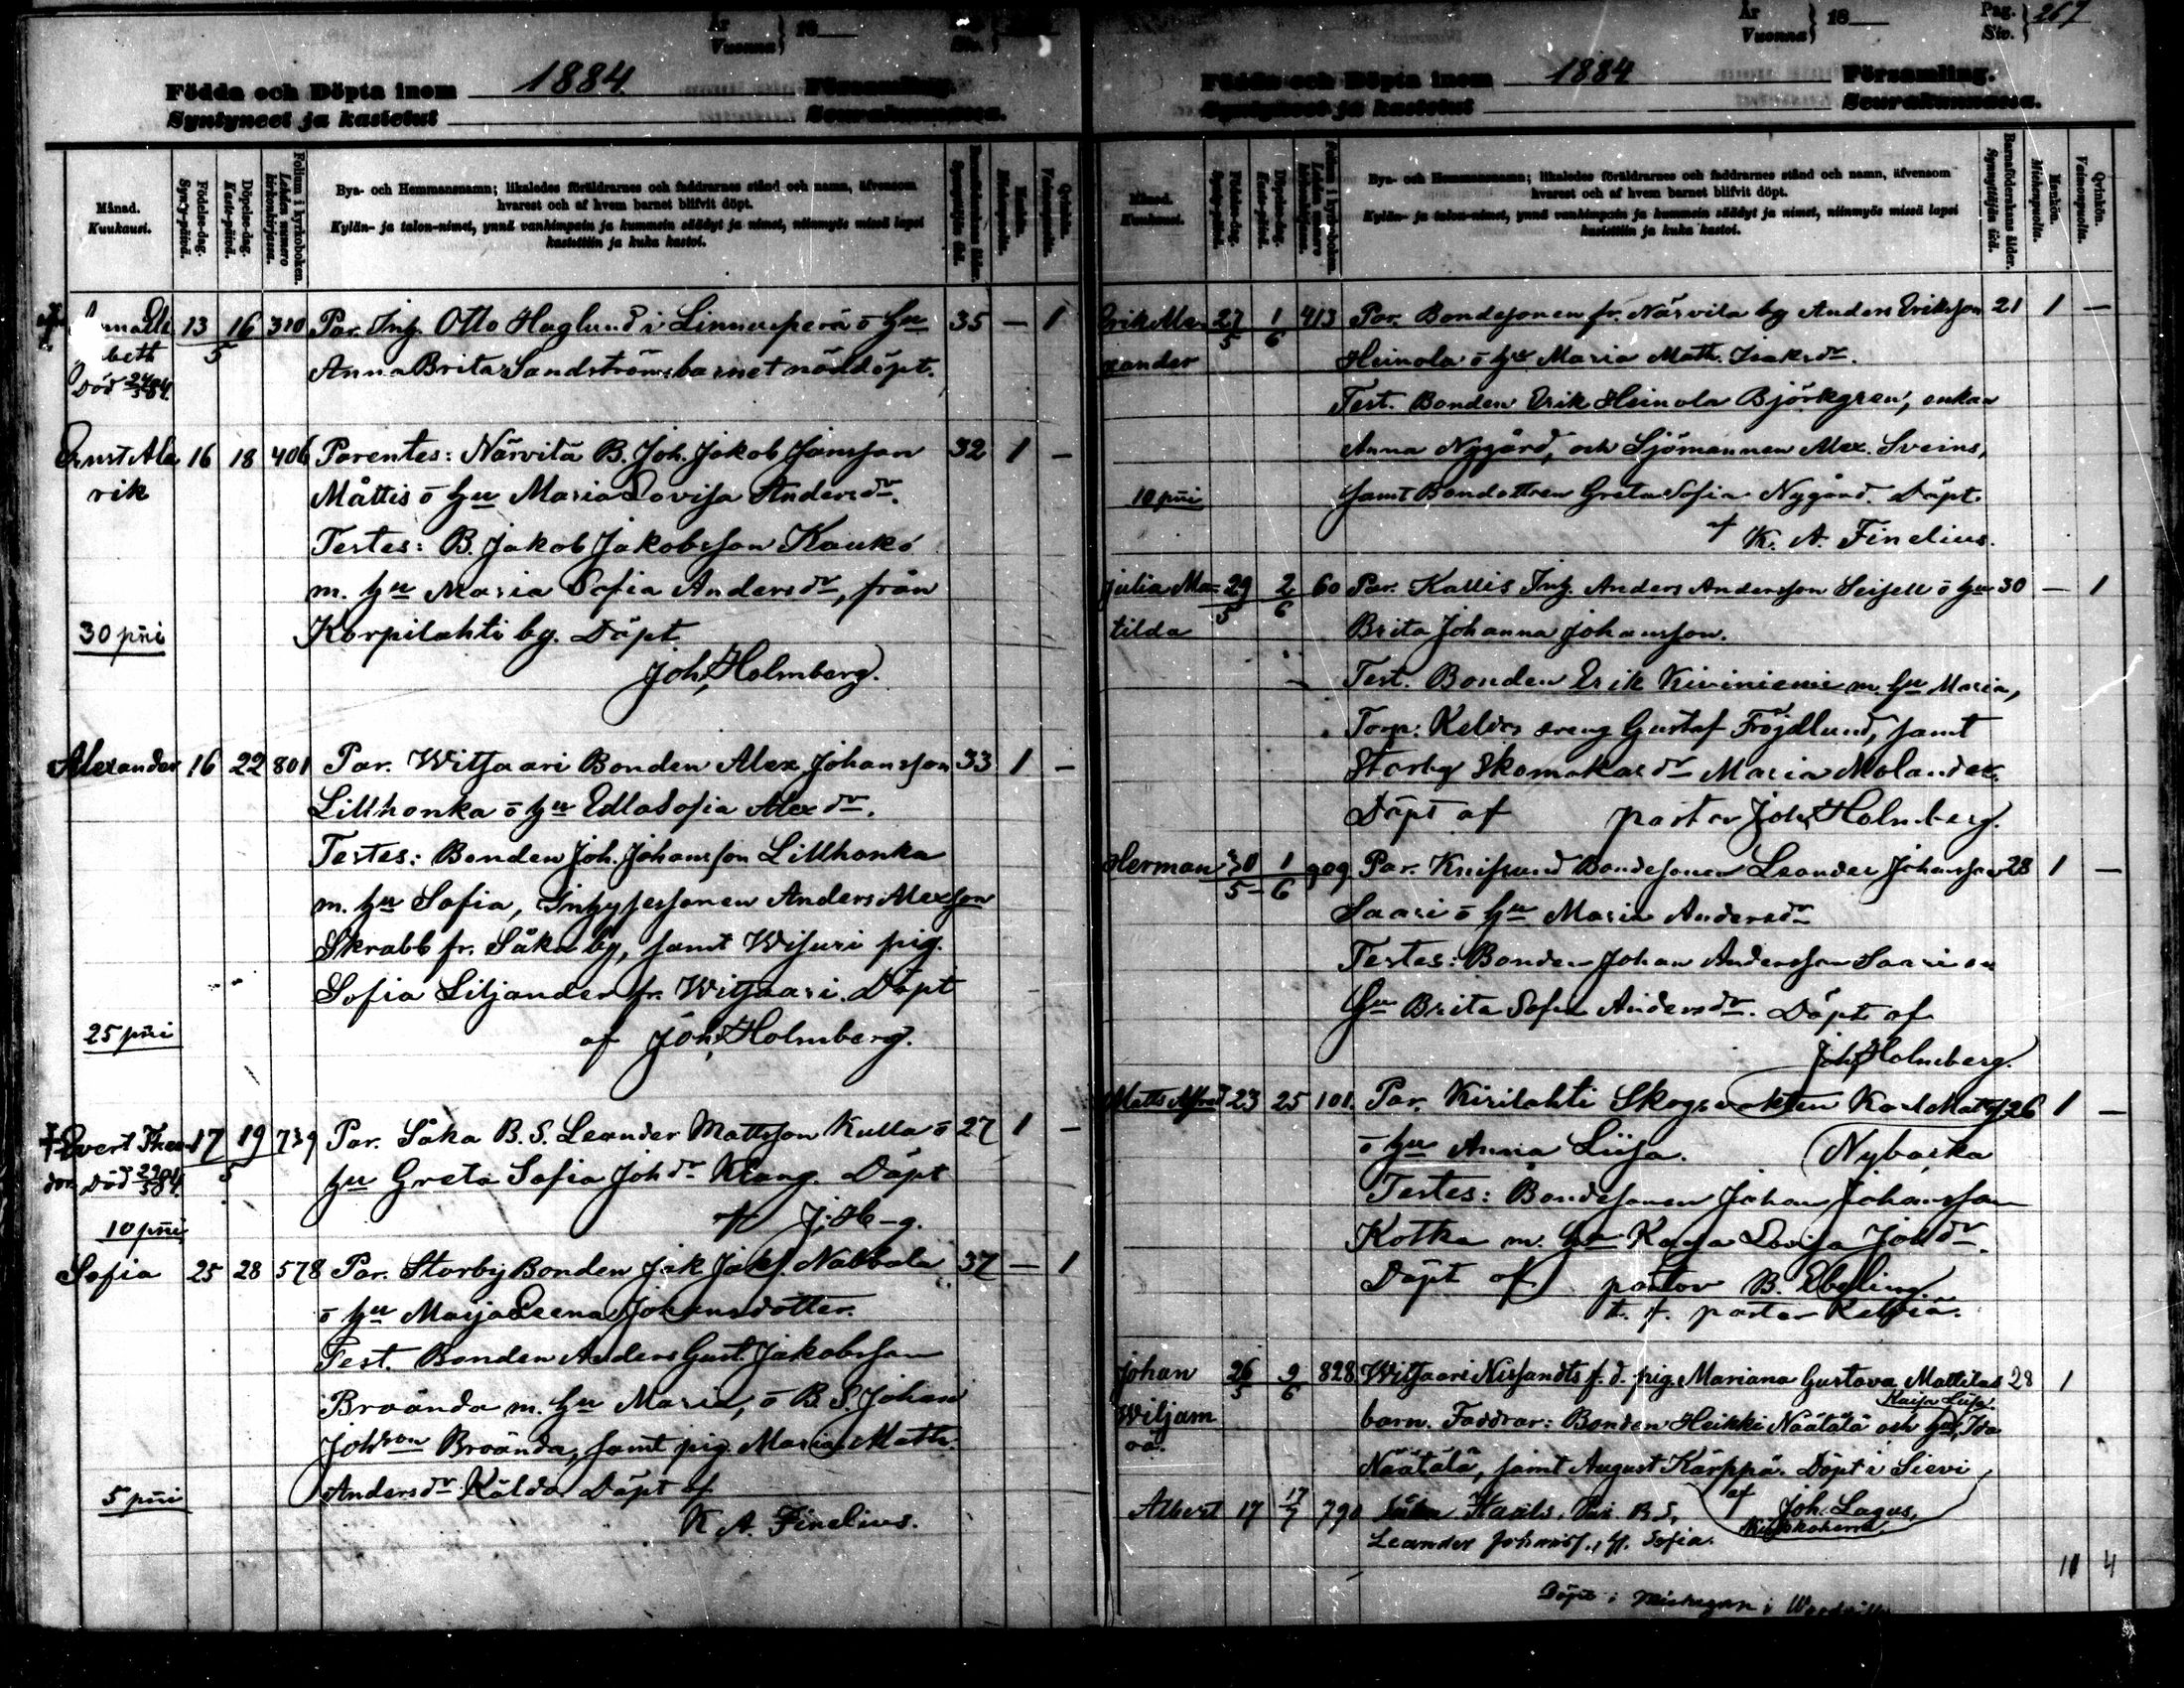 År Vuonna } 18
Siv.
1884
Födda och Döpta inom Församling.
Syntyneet ja kastetut Seurakunnassa.
Månad. Kuukausi.
Födelse-dag. Synty-päivä.
Döpelse-dag. Kaste-päivä.
Folium i kyrkoboken. Lehden numero kirkonkirjassa.
Bya- och Hemmansnamn; likaledes föräldrarnes och faddrarnes stånd och namn, äfvensom
hvarest och af hvem barnet blifvit döpt.
Kylän- ja talon-nimet, ynnä vanhimpain ja kummein säädyt ja nimet, niinmyös missä lapsi
kastettiin ja kuka kastoi.
Qvinkön. Vaimonpuolia.
13 16 310 Par. Inh. Otto Haglund i Linnusperä o hu 35 — 1
beth 5 Anna Brita Sandström barnet nöddöpt.
Död 24/5 84.
Ernst Ala 16 18 406 Parentes: Närvilä B. Joh. Jakob Jansson 32 1 —
rik Måttis o hu Maria Lovisa Andersdr.
Testes: B. Jakob Jakobsson Kauko
m. hu Maria Sofia Andersdr, från
30 pni Korpilahti by. Döpt
Joh. Holmberg.
Alexander 16 22 801 Par. Witsaari Bonden Alex Johansson 33 1 —
Lillhonka o hu Edla Sofia Alexdr.
Testes: Bonden Joh. Johansson Lillhonka
m. hu Sofia, Inhysessonen Anders Alexson
Skrabb fr. Såka by, samt Wisuri pig.
Sofia Liljander fr. Witsaari. Döpt
25 pni af Joh. Holmberg.
Evert Theo 17 19 739 Par. Såka B. S. Leander Mattsson Kulla o 27 1 —
dor Död 29/5 84. 5 hu Greta Sofia Johdr Klang. Döpt
10 pni af J. H-g.
Sofia 25 28 578 Par. Storby Bonden Jak. Jaks. Nabbala 37 — 1
o hu Maja Leena Johansdotter.
Test. Bonden Anders Gust. Jakobsson
Broända m. hu Maria, o B. S. Johan
Johson Broända, samt pig. Maria Math.
5 pni Andersdr Kälda Döpt af
K A. Finelius.
År Vuonna } 18 Pag. Siv. } 267
1884
Födda och Döpta inom Församling.
Syntyneet ja kastetut Seurakunnassa.
Månad. Kuukausi.
Födelse-dag. Synty-päivä.
Döpelse-dag. Kaste-päivä.
Folium i kyrkoboken. Lehden numero kirkonkirjassa.
Bya- och Hemmansnamn; likaledes föräldrarnes och faddrarnes stånd och namn, äfvensom
hvarest och af hvem barnet blifvit döpt.
Kylän- ja talon-nimet, ynnä vanhimpain ja kummein säädyt ja nimet, niinmyös missä lapsi
kastettiin ja kuka kastoi.
Barnaföderskans ålder. Synnyttäjän ikä.
Mankön. Miehenpuolia.
Qvinkön. Vaimonpuolia.
Erik Alex 27/5 1/6 413 Par. Bondesonen fr. Närvila by Anders Eriksson 21 1 —
xander Heinola o hu Maria Math. Isaksdr.
Test. Bonden Erik Heinola Björkgren, enkan
Anna Nygård, och Sjömannen Alex. Sveins,
10 pni samt Bondottren Greta Sofia Nygård. Döpt.
af K. A. Finelius.
Julia Ma- 29/5 2/6 60 Par. Kallis Inh. Anders Andersson Seisell o hu 30 — 1
tilda Brita Johanna Johansson.
Test. Bonden Erik Kiviniemi m. hu Maria,
Torp. Keldos dreng Gustaf Fröjdlund, samt
Storby Skomakardr Maria Molander.
Döpt af pastor Joh. Holmberg.
Herman 30/5 1/6 909 Par. Knifsund Bondesonen Leander Johansson 28 1 —
Saari o hu Maria Andersdr
Testes: Bonden Johan Andersson Saari o
hu Brita Sofia Andersdr. Döpt af
Joh. Holmberg.
Matts Alfred 23 25 101. Par. Kirilahti Skogsvakten Karl Matts 26 1 —
o hu Anna Liisa. Nybacka
Testes: Bondesonen Johan Johansson
Kotka m. hu Kaja Lovisa Johdr.
Döpt af pastor B. Ebeling.
t. f. pastor Kelviå.
Johan 26/5 9/6 828 Witsaari Nissandts f. d. pig. Mariana Gustava Mattilas 28 1
Kaisa Liisa
Wiljam barn. Faddrar: Bonden Heikki Näätälä och hu, Ida
oä. Näätälä, samt August Kärppä. Döpt i Sievi
af Joh. Lagus,
Kyrkoherre.
Albert 17 17/7 790 Par. B. S.
Leander Johanss., H. Sofia.
11 4
Döpt i Michigan i